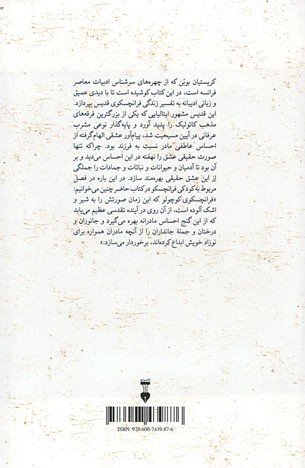 کریستیان بوبَن که از چهره‌های سرشناس ادبیات معاصر
فرانسه است، در این کتاب کوشیده است تا با دیدی عمیق
و زبانی ادیبانه به تفسیر زندگی فرانچسکوی قدیس بپردازد.
این قدیس مشهور ایتالیایی که یکی از بزرگترین فرقه‌های
مذهب کاتولیک را پدید آورد و پایه‌گذار نوعی مشرب
عرفانی در آیین مسیحیت شد، پیام‌آور عشقی الهام‌گرفته از
احساس عاطفی مادر نسبت به فرزند بود. چراکه تنها
صورت حقیقی عشق را نهفته در این احساس می‌دید و بر
آن بود تا آدمیان و حیوانات و نباتات و جمادات را جملگی
از این عشق حقیقی بهره‌مند سازد. در این باره در فصل
مربوط به کودکی فرانچسکو در کتاب حاضر چنین می‌خوانیم:
«فرانچسکوی کوچولو که این زمان صورتش را به شیر و
اشک آلوده است، از آن روی در آینده تقدسی عظیم می‌یابد
که از این گنج احساس مادرانه بهره می‌گیرد و جانوران و
درختان و جملهٔ جانداران را از آنچه مادران همواره برای
نوزاد خویش ابداع کرده‌اند، برخوردار می‌سازد.»
ISBN: 978-600-7439-87-6